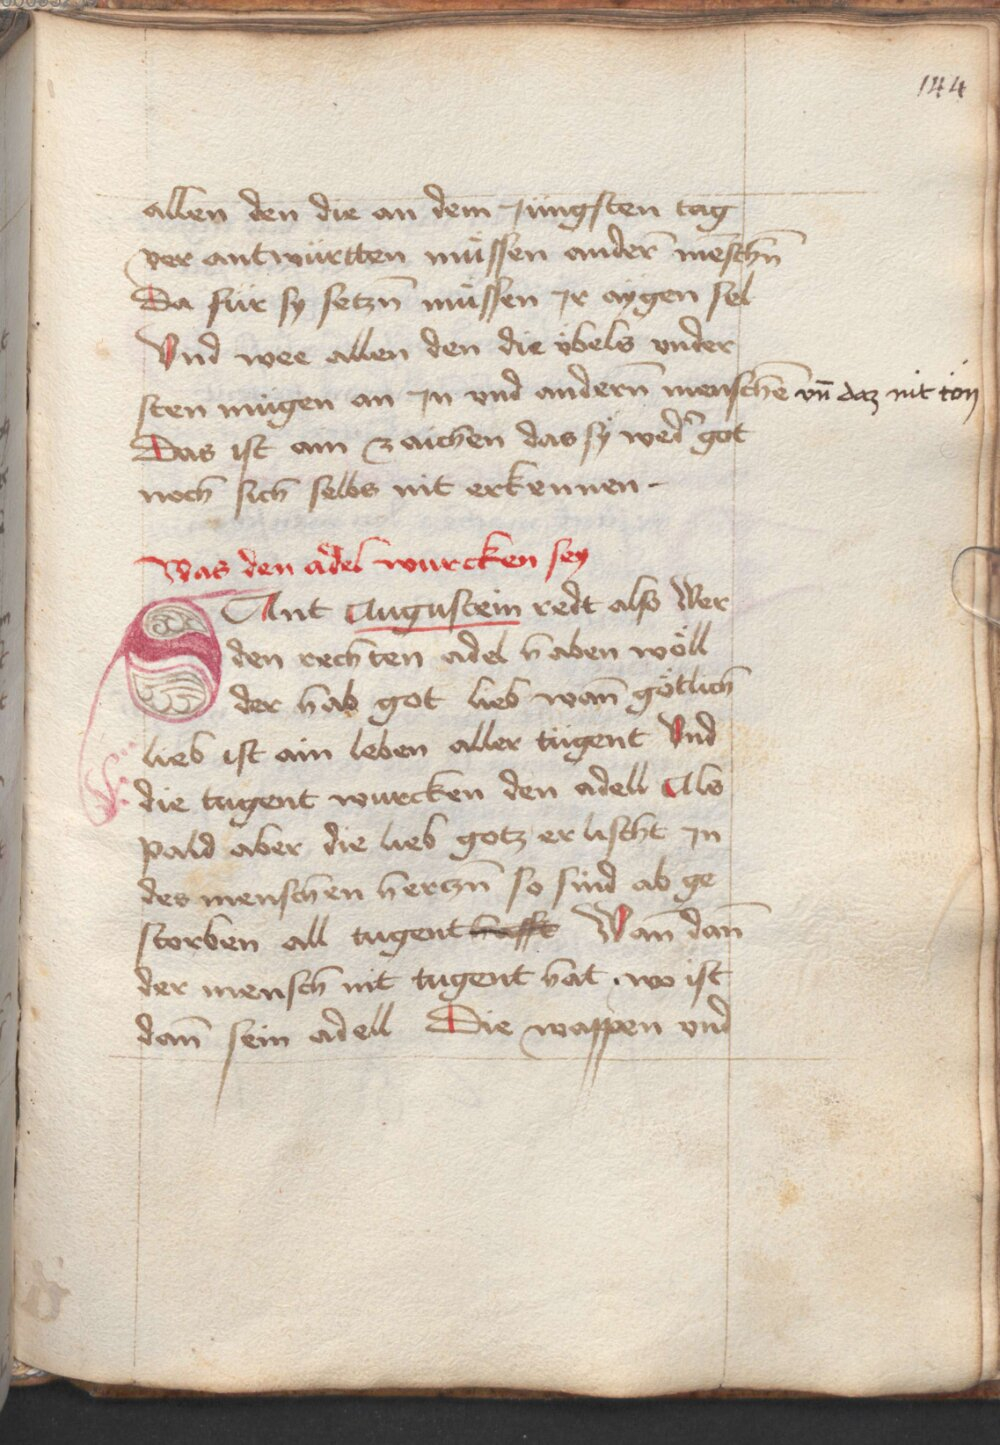 144
allen den die an dem Jüngsten tag
ver antwürtten müssen andern̄ mēschn̄
Da für sy setzn̄ müssen Jr aygen sel
Vnd wee allen den die v̈bels vnder
sten mügen an Jn vnd andern̄ menschē vn̄ daz nit tön
Das ist ain zaichen das sy wed' got
noch sich selbs nit erkennen -
Was den adel wurcken sey
SAnt Augustein redt also Wer
den rechten adel haben wöll
der hab got lieb wan̄ götlich
lieb ist ain leben aller tugent Vnd
die tugent wurcken den adell Als
pald aber die lieb gotz er lischt Jn
des menschen hertzn̄ so sind ab ge
storben all tugent hafft Wan̄ dan̄
der mensch nit tugent hat . wo ist
dan̄ sein adell Die wappen vnd